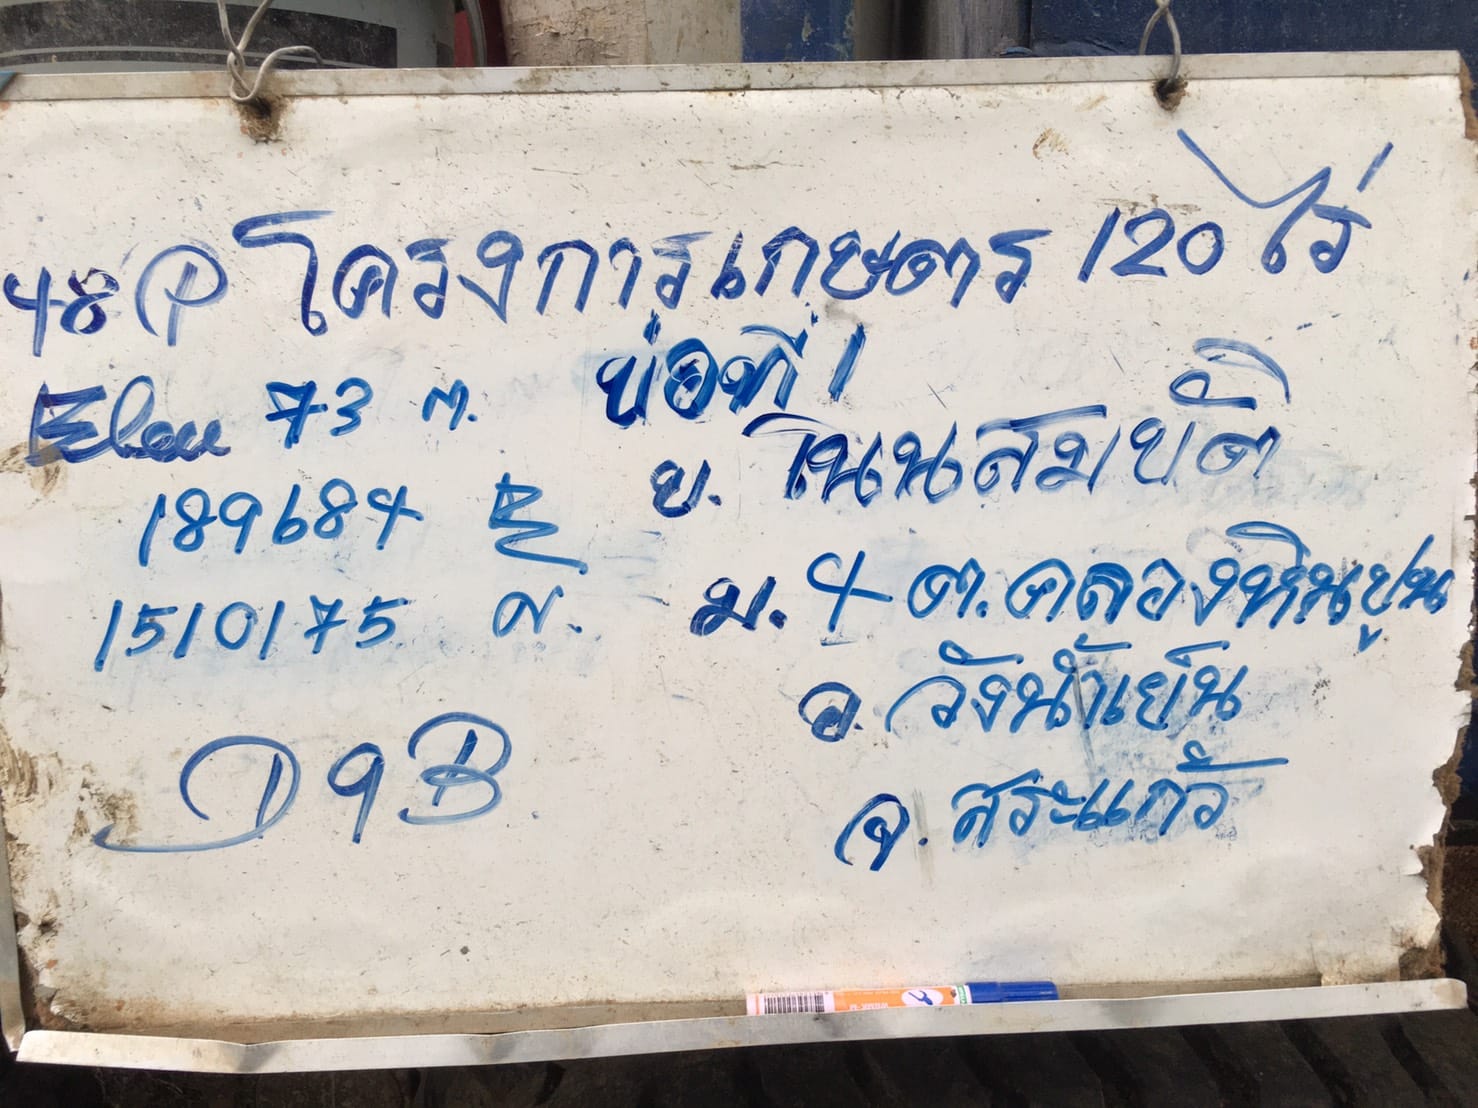 48 P โครงการเกษตร 120 ไร่
Elev 73 ม. บ่อที่ 1
บ. โนนสมบัติ
189684 E
1510175 N.
ม. 4 ต. คลองหินปูน
อ. วังน้ำเย็น
D9B
จ. สระแก้ว